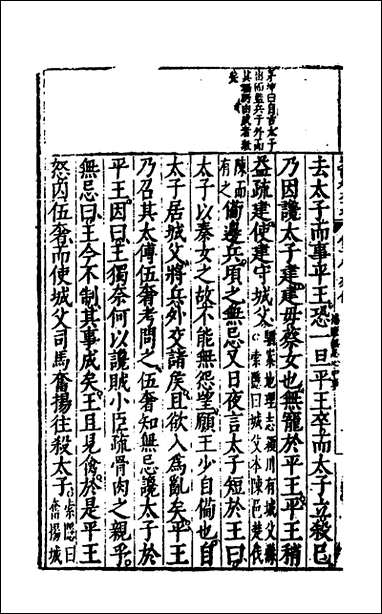 去太子而事平王恐一旦平王卒而太子立殺己
乃因讒太子建建母蔡女也無寵於平王平王稍
益疏建使建守城父駰案地理志潁川有城父縣
索隱曰城父本陳邑楚伐
陳而
有之備邊兵頃之無忌又日夜言太子短於王曰
太子以秦女之故不能無怨望願王少自備也自
太子居城父將兵外交諸侯且欲入為亂矣平王
乃召其太傅伍奢考問之伍奢知無忌讒太子於
平王因曰王獨奈何以讒賊小臣疏骨肉之親乎
無忌曰王今不制其事成矣王且見禽於是平王
怒囚伍奢而使城父司馬奮揚往殺太子索隱曰
奮揚城